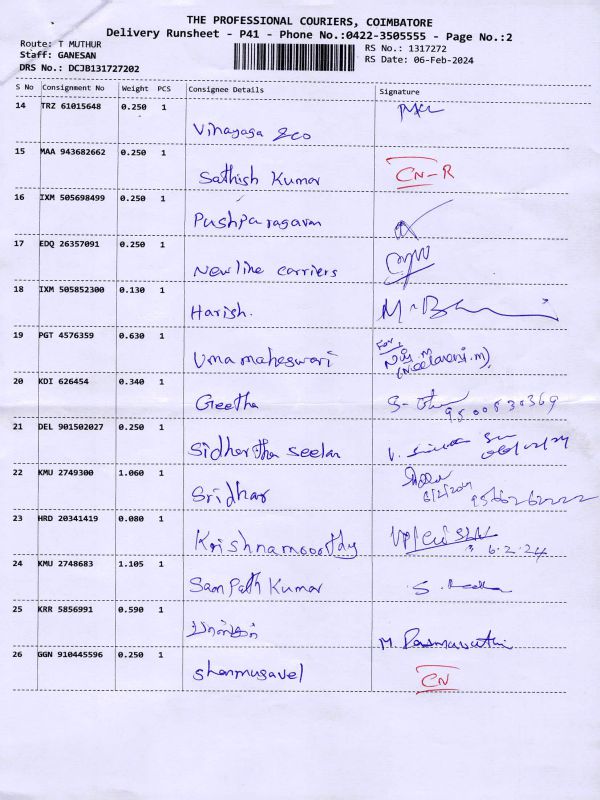 THE PROFESSIONAL COURIERS, COIMBATORE
Delivery Runsheet - P41 - Phone No.:0422-3505555 - Page No.:2
Route: T MUTHUR
Staff: GANESAN
DRS No.: DCJB131727202
RS No.: 1317272
RS Date: 06-Feb-2024
S No Consignment No Weight PCS Consignee Details Signature
14 TRZ 61015648 0.250 1
Vinayaga Eco
15 MAA 943682662 0.250 1
Sathish Kumar CN-R
16 IXM 505698499 0.250 1
Pushparagavan
17 EDQ 26357091 0.250 1
Newline carriers
18 IXM 505852300 0.130 1
Harish.
19 PGT 4576359 0.630 1
For
Uma maheswari
(Neelaveni.m)
20 KDI 626454 0.340 1
Geetha 9500830369
21 DEL 901502027 0.250 1
Sidhartha Seelan
06/02/24
22 KMU 2749300 1.060 1
Sridhar 6/2/2024
23 HRD 20341419 0.080 1
Krishnamoorthy
6.2.24
24 KMU 2748683 1.105 1
Sampath Kumar
25 KRR 5856991 0.590 1
M. Pasmavathi
26 GGN 910445596 0.250 1
Shanmugavel CN